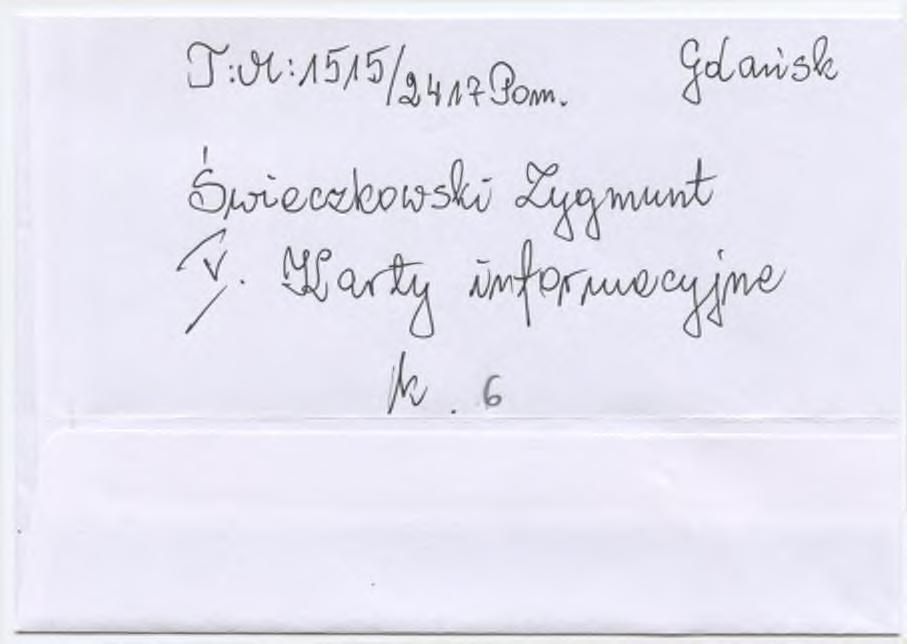 T:M:1515/2417 Pom. Gdańsk
Świeczkowski Zygmunt
V. Karty informacyjne
k. 6